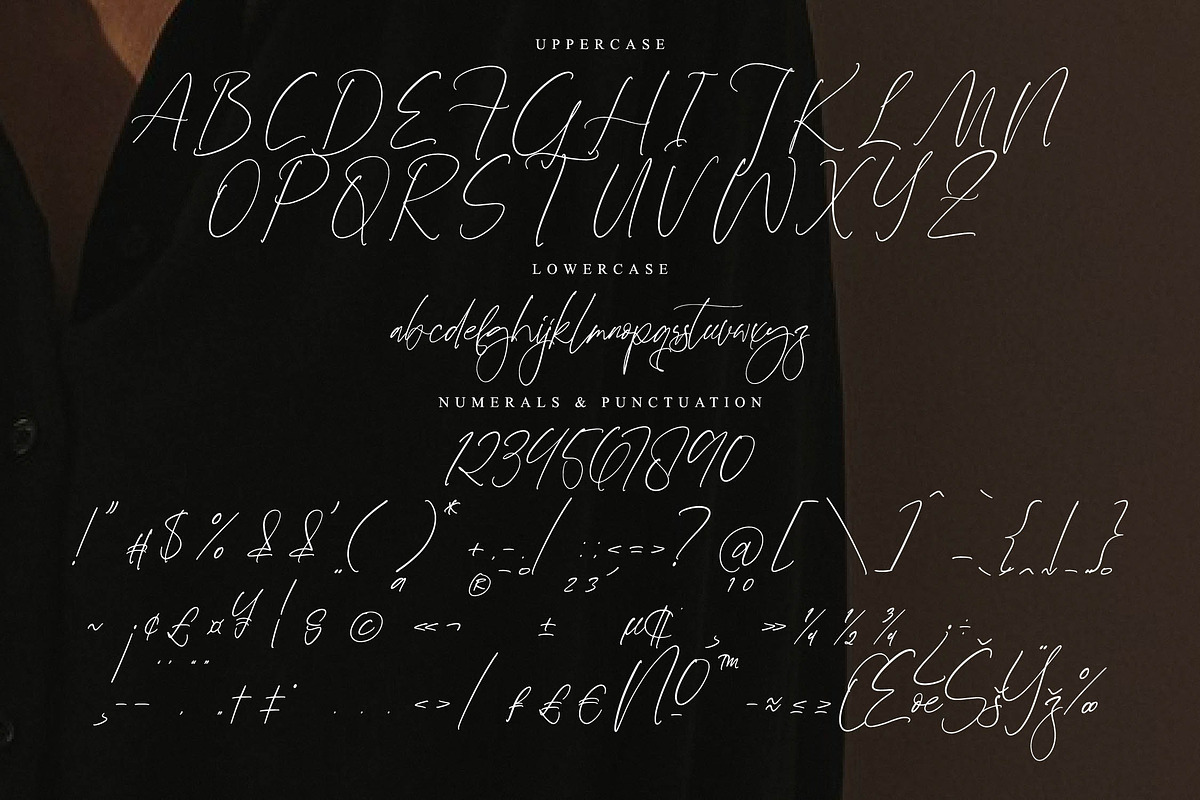 UPPERCASE
ABCDEFGHIJKLMN
OPQRSTUVWXYZ
LOWERCASE
abcdefghijklmnopqrstuvwxyz
NUMERALS & PUNCTUATION
1234567890
!"#$%&&'()*+,-./:;<=>?@[\]^_`{|}
~¡¢£¤¥¦§©ª«¬®±²³µ¶¹º»¼½¾¿÷
–—†‡•...‹›⁄ƒ₤€№™−≈≤≥ŒœŠšŸž‰